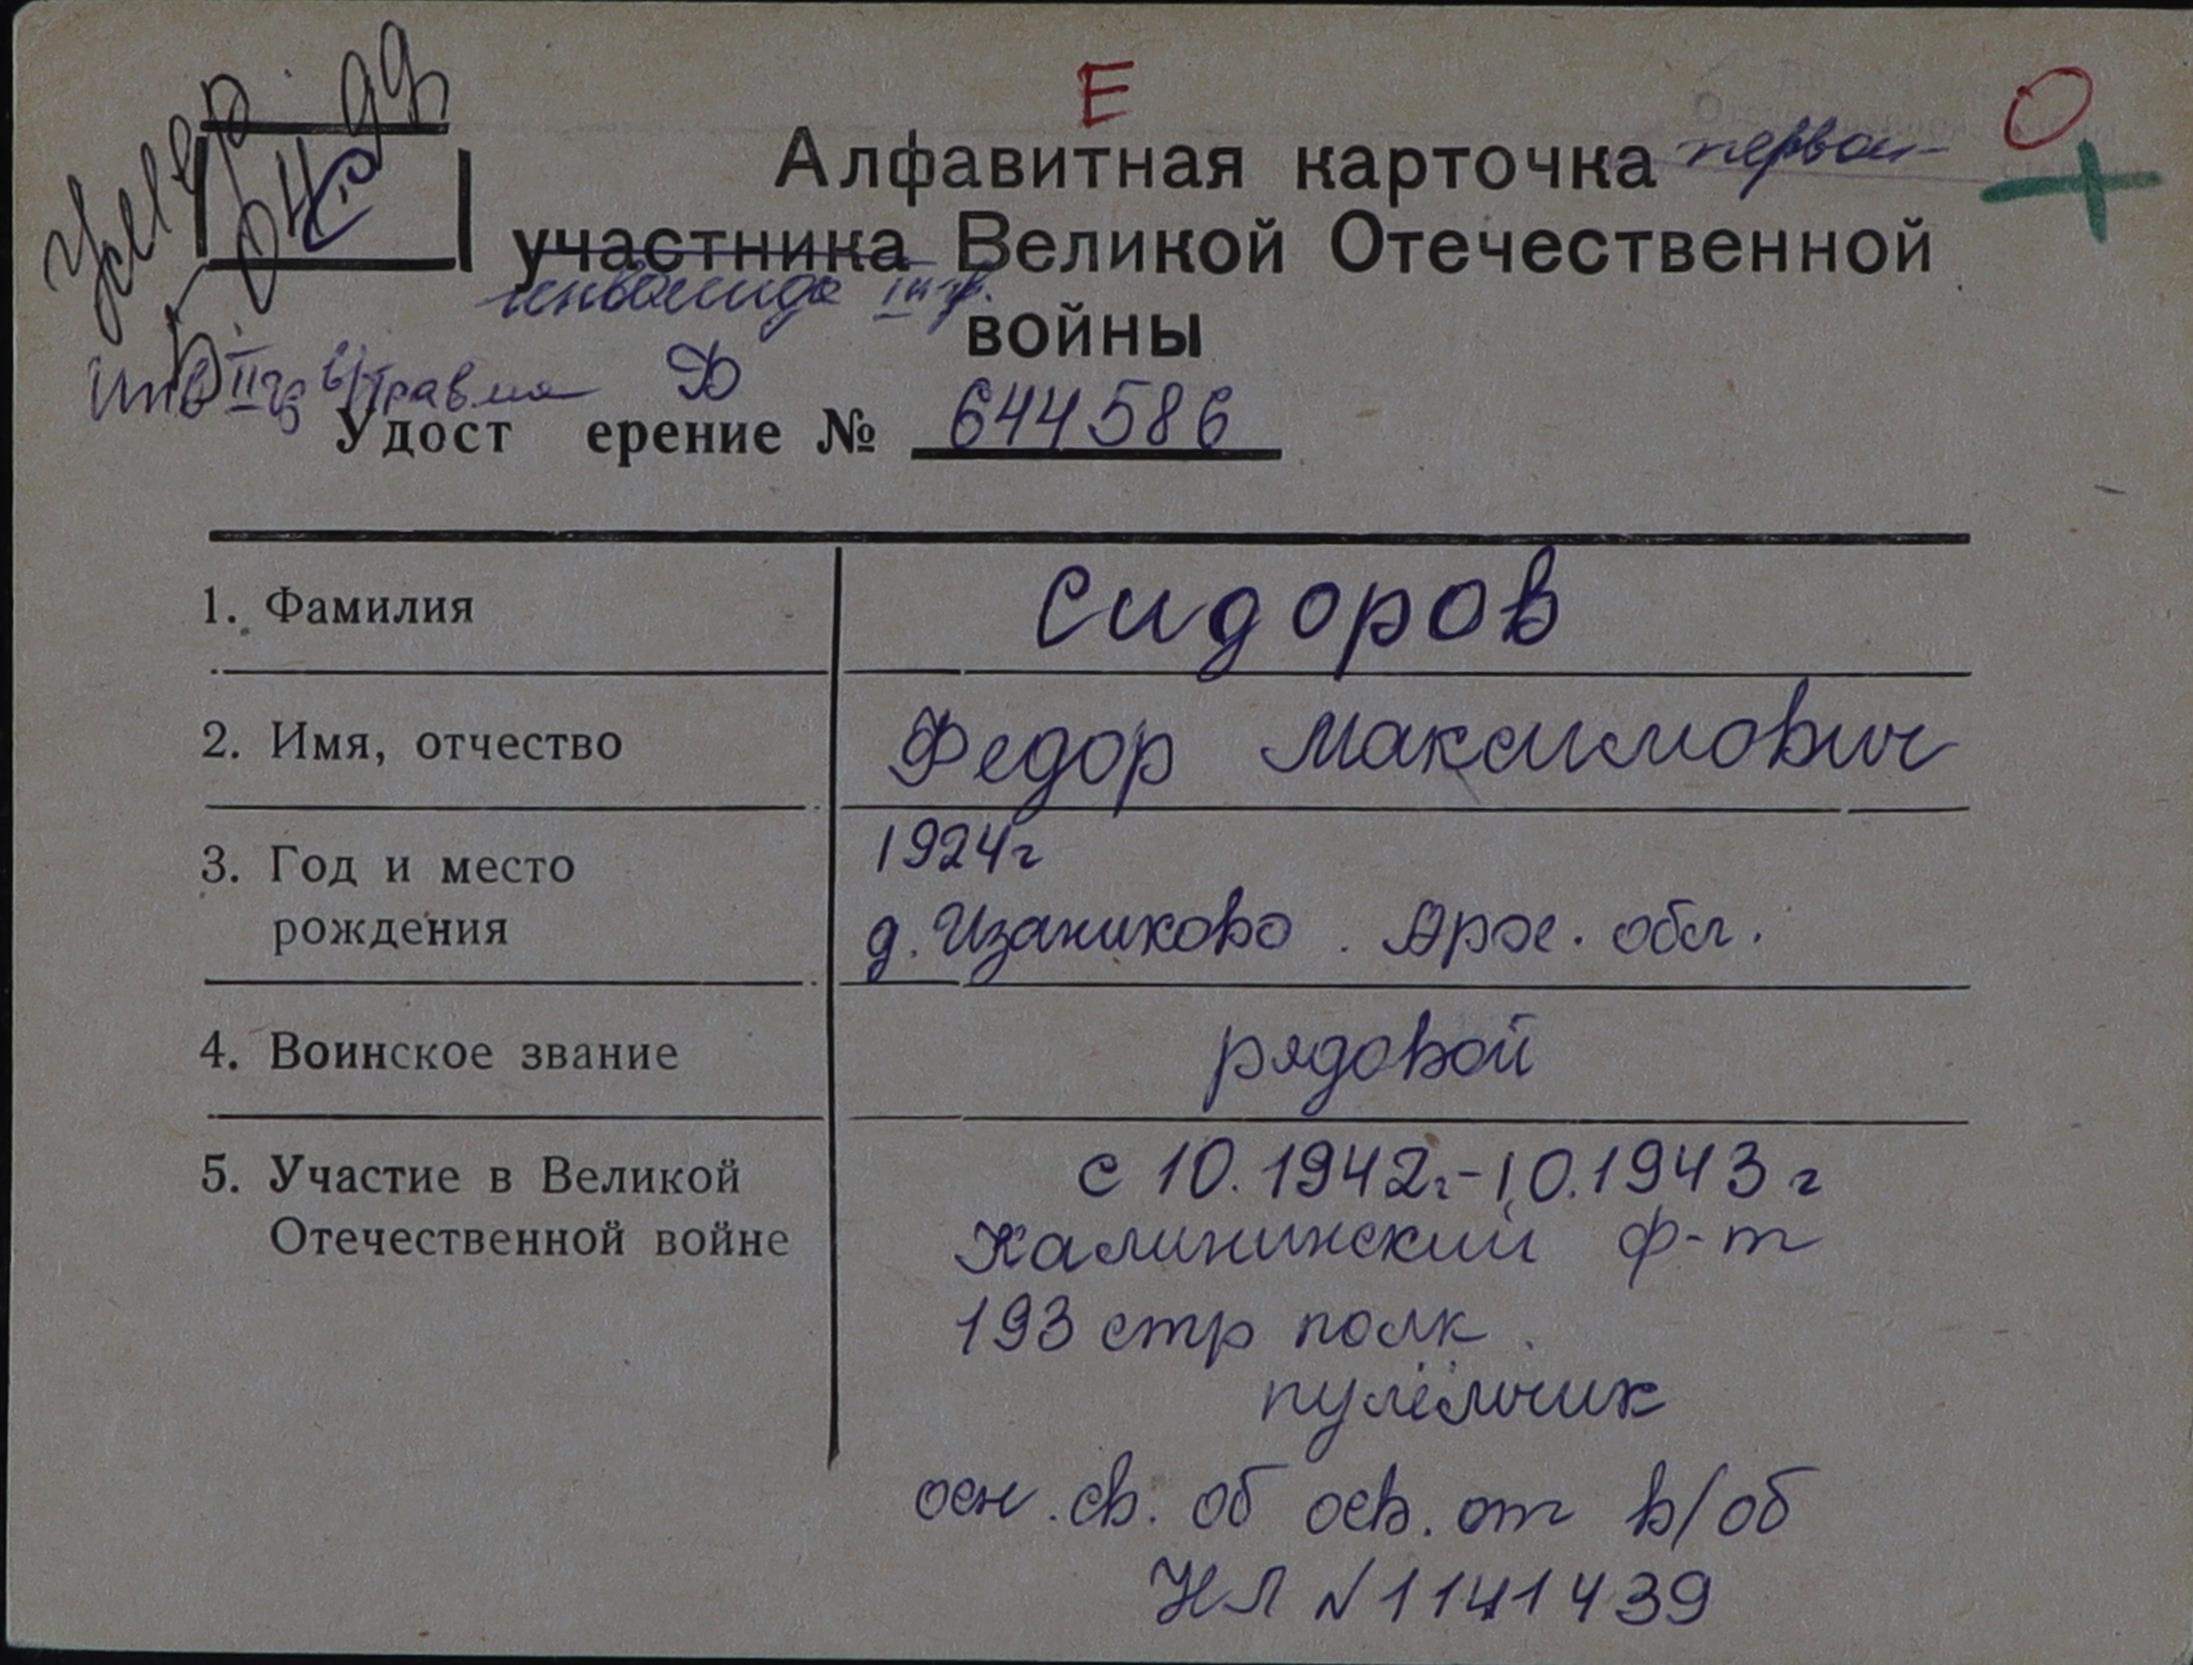 Умер
04.99
С
Е
О
Алфавитная карточка первой
участника Великой Отечественной
инвалида III гр.
войны
Инв II гр в/травма Д
Удост ерение № 644586
1. Фамилия Сидоров
2. Имя, отчество Федор Максимович
3. Год и место 1924г
рождения д. Изаниково. Арх. обл.
4. Воинское звание рядовой
5. Участие в Великой с 10.1942г.-10.1943г
Отечественной войне Калининский ф-т
193 стр полк.
пулемчик
осн. св. об осв. от в/об
НЛ №1141439